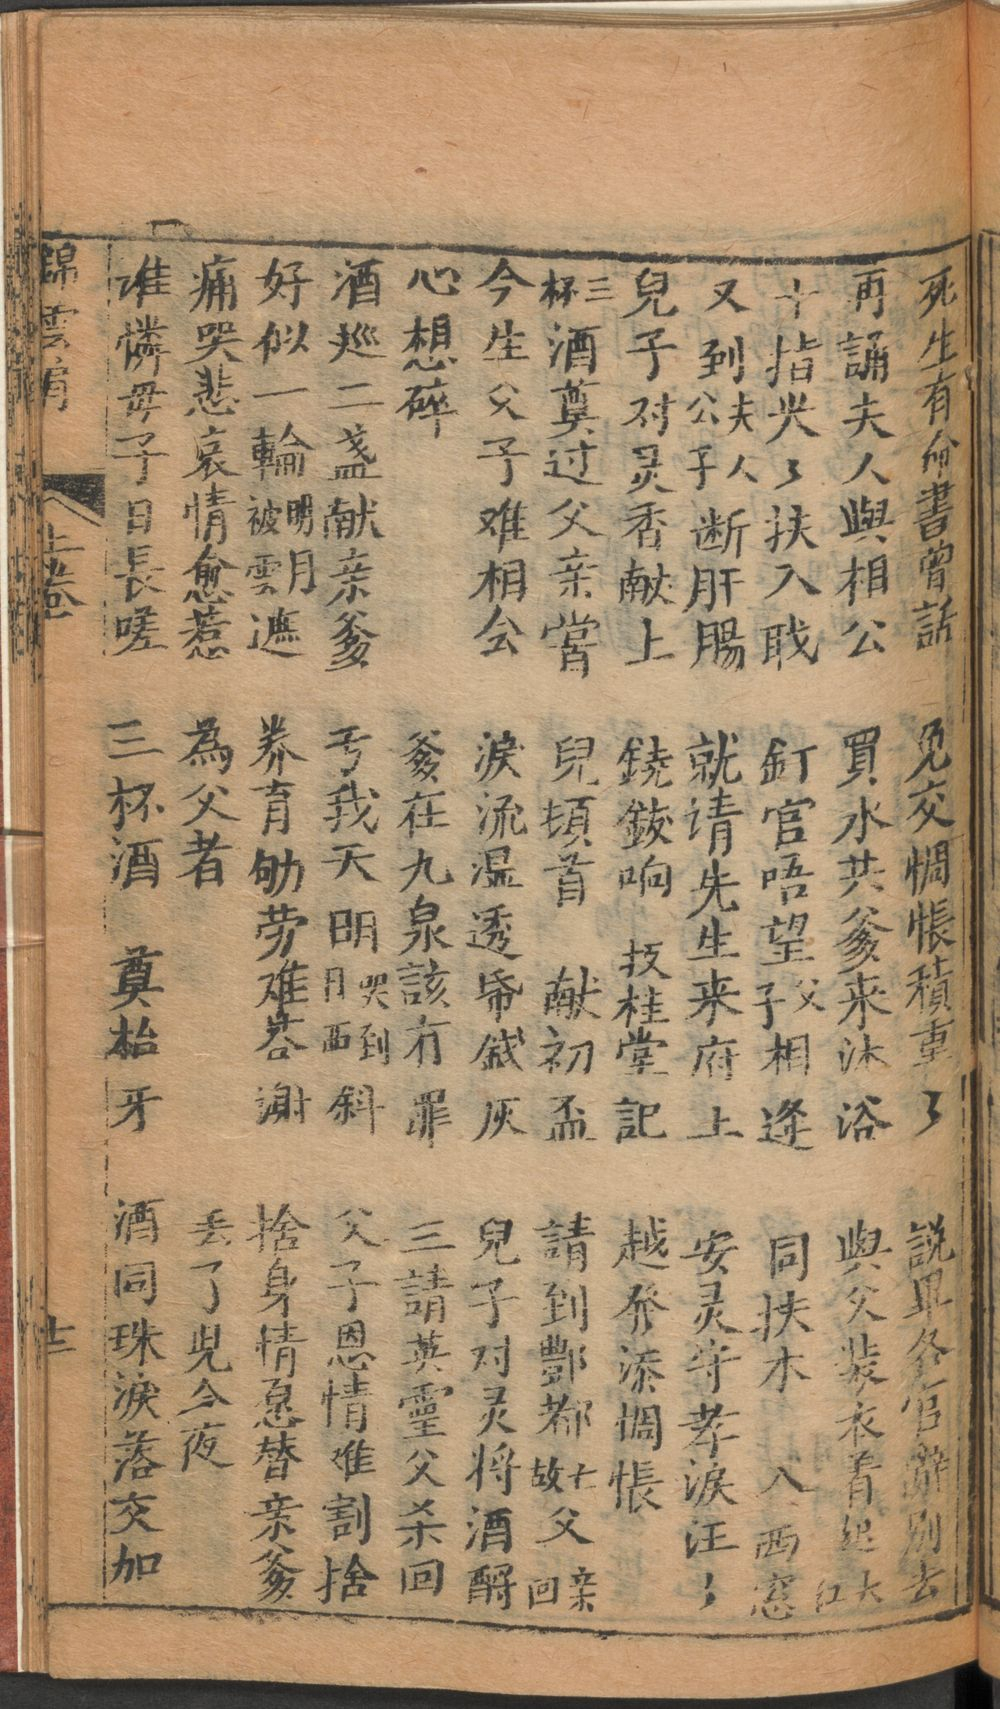 死生有命書曾話 免交惆悵積重〻 説畢各官辭別去
再誦夫人與相公 買水共爹来沐浴 與父裝衣着起大紅
十指尖〻扶入戙 釘官唔望父子相逢 同扶木 入西窓
又到夫人公子断肝腸 就请先生来府上 安灵守孝淚汪〻
兒子对灵香献上 鐃鈸响 技桂堂記 越発添惆悵
三杯酒奠过父亲嘗 兒頓首 献初盃 請到酆都亡故父亲回
今生父子难相会 淚流湿透帋錢灰 兒子对灵将酒酹
心想碎 爹在九泉該冇罪 三請英靈父杀回
酒廵二盞献亲爹 亐我天明哭到月西斜 父子恩情难割捨
好似一輪明月被雲遮 养育劬劳难荅謝 捨身情愿替亲爹
痛哭悲哀情愈惹 為父者 丢了兒今夜
谁憐母子日長嗟 三杯酒 奠枱牙 酒同珠淚落交加
錦雲肩 上卷 十三